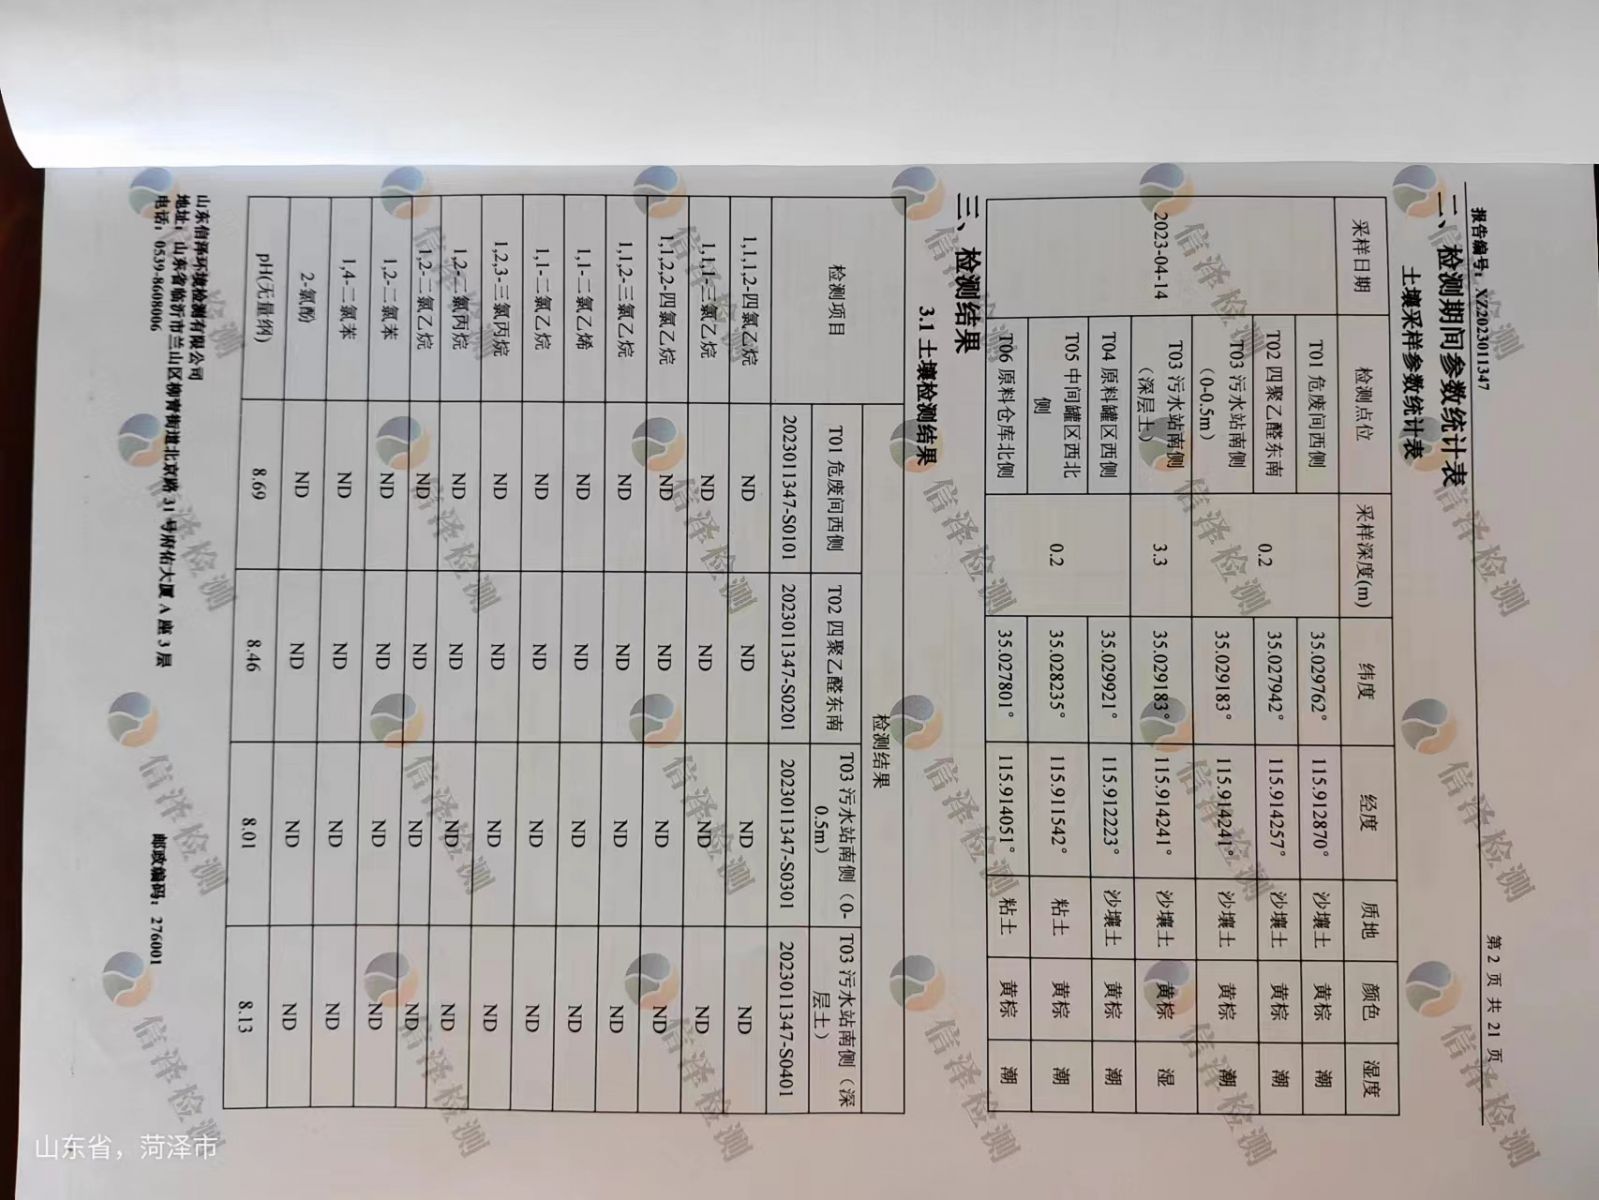 报告编号：XZ2023011347 第 2 页 共 21 页
二、检测期间参数统计表
土壤采样参数统计表
采样日期 检测点位 采样深度(m) 纬度 经度 质地 颜色 湿度
2023-04-14 T01 危废间西侧 0.2 35.029762° 115.912870° 沙壤土 黄棕 潮
T02 四聚乙醛东南 35.027942° 115.914257° 沙壤土 黄棕 潮
T03 污水站南侧
（0-0.5m） 35.029183° 115.914241° 沙壤土 黄棕 潮
T03 污水站南侧
（深层土） 3.3 35.029183° 115.914241° 沙壤土 黄棕 湿
T04 原料罐区西侧 0.2 35.029921° 115.912223° 沙壤土 黄棕 潮
T05 中间罐区西北
侧 35.028235° 115.911542° 粘土 黄棕 潮
T06 原料仓库北侧 35.027801° 115.914051° 粘土 黄棕 潮
三、检测结果
3.1 土壤检测结果
检测项目 检测结果
T01 危废间西侧 T02 四聚乙醛东南 T03 污水站南侧（0-
0.5m） T03 污水站南侧（深
层土）
2023011347-S0101 2023011347-S0201 2023011347-S0301 2023011347-S0401
1,1,1,2-四氯乙烷 ND ND ND ND
1,1,1-三氯乙烷 ND ND ND ND
1,1,2,2-四氯乙烷 ND ND ND ND
1,1,2-三氯乙烷 ND ND ND ND
1,1-二氯乙烯 ND ND ND ND
1,1-二氯乙烷 ND ND ND ND
1,2,3-三氯丙烷 ND ND ND ND
1,2-二氯丙烷 ND ND ND ND
1,2-二氯乙烷 ND ND ND ND
1,2-二氯苯 ND ND ND ND
1,4-二氯苯 ND ND ND ND
2-氯酚 ND ND ND ND
pH(无量纲) 8.69 8.46 8.01 8.13
山东信泽环境检测有限公司
地址：山东省临沂市兰山区柳青街道北京路 31 号府佑大厦 A 座 3 层
电话：0539-8608006 邮政编码：276001
信泽检测
山东省，菏泽市